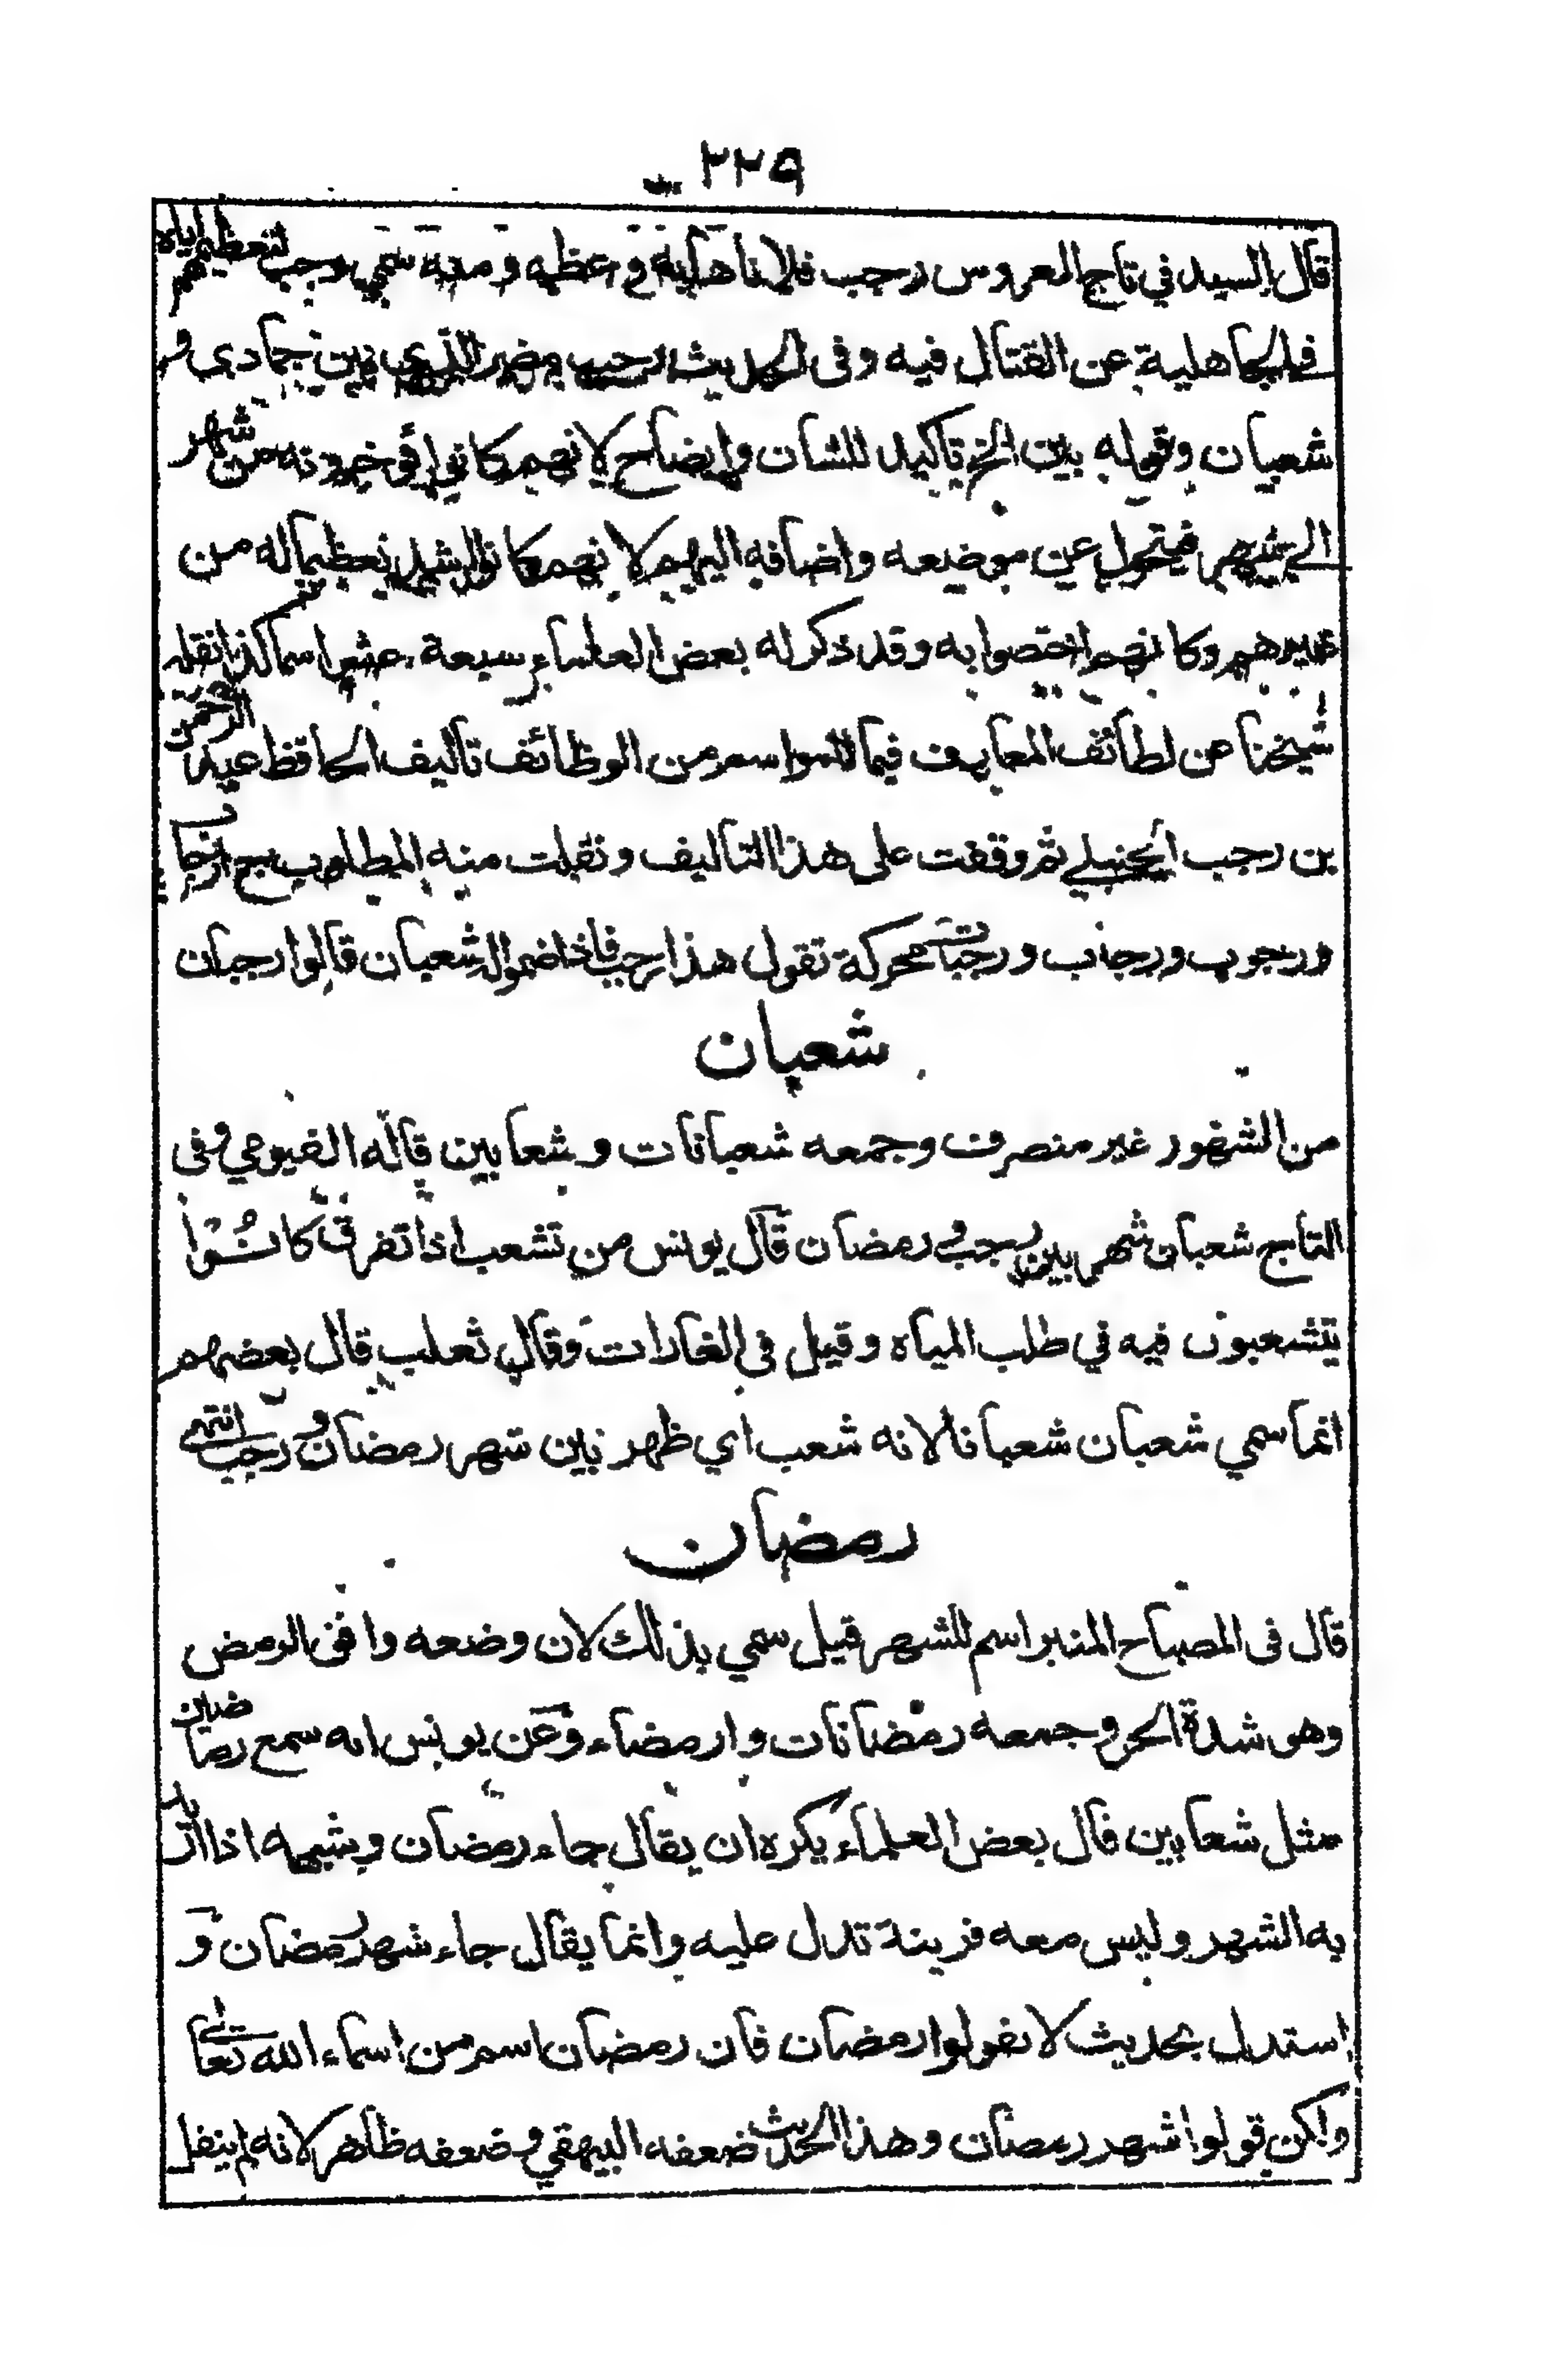 ٢٢٩
قال السيد في تاج العروس رجب فلانا هابه و عظمه و منه سمي رجب لتعظيمهم اياه
في الجاهلية عن القتال فيه وفى الحديث رجب مضر الذي بين جمادى و
شعبان وقوله بين الخ تاكيد للشان وايضاح لانهم كانوا يؤخرونه من شهر
الى شهر فيتحول عن موضعه واضافه اليهم لانهم كانوا اشد تعظيما له من
غيرهم وكانهم اختصوا به وقد ذكر له بعض العلماء سبعة عشر اسما كذا نقله
شيخنا عن لطائف المعارف فيما للمواسم من الوظائف تاليف الحافظ عبد الرحمن
بن رجب الحنبلي ثم وقفت على هذا التاليف ونقلت منه المطلوب ج ارجاب
ورجوب ورجاب ورجبات محركة تقول هذا رجب فاذا ضموا له شعبان قالوا رجبان
شعبان
من الشهور غير منصرف وجمعه شعبانات وشعابين قاله الفيومي وفى
التاج شعبان شهر بين رجب ورمضان قال يونس من تشعب اذا تفرق كانُوْا
يتشعبون فيه في طلب المياه وقيل فى الغارات وقال ثعلب قال بعضهم
انما سمي شعبان شعبانا لانه شعب اي ظهر بين شهر رمضان و رجب انتهى
رمضان
قال فى المصباح المنير اسم للشهر قيل سمي بذلك لان وضعه وافق الرمض
وهو شدة الحر وجمعه رمضانات وارمضاء وعن يونس انه سمع رماضين
مثل شعابين قال بعض العلماء يكره ان يقال جاء رمضان وشبهه اذا اريد
به الشهر وليس معه قرينة تدل عليه وانما يقال جاء شهر رمضان و
استدل بحديث لا تقولوا رمضان فان رمضان اسم من اسماء الله تعالى
ولكن قولوا شهر رمضان وهذا الحديث ضعفه البيهقي وضعفه ظاهر لانه لم ينقل